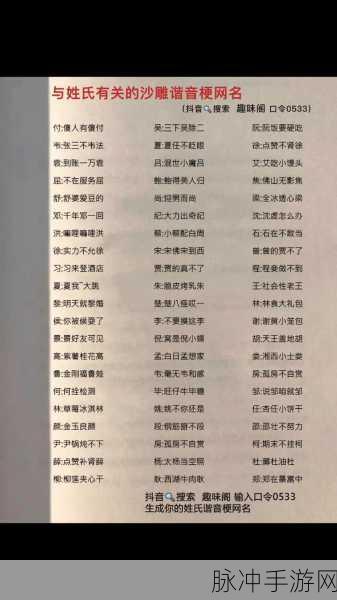 与姓氏有关的沙雕谐音梗网名
(抖音🔍搜索 趣味阁 口令0533)
付:傻人有傻付 吴:三下吴除二 阮:阮饭要硬吃
韦:张三不韦法 夏:夏任不眨眼 徐:点赞不肾徐
袁:到账一万袁 吕:混世小魔吕 艾:艾吃小馒头
屈:不在服务屈 鲍:鲍得美人归 焦:佛山无影焦
舒:舒婆爱豆的 尚:迎男而尚 梁:全冰透心梁
邓:千年邓一回 纪:大力出奇纪 沈:沈虚怎么办
洪:嘛哩嘛哩洪 蔡:小蔡配白周 石:石在不敢当
徐:实力不允徐 宋:宋佛宋到西 曾:曾的贾不了
习:习来登酒店 贾:贾的真不了 程:程妾做不到
夏:夏我~大跳 朱:脆皮烤乳朱 王:社会性老王
黎:明天就黎婚 楚:楚八座哎一 林:林食大礼包
侯:你被侯耍了 李:不要摸这李 谢:谢黄小笼包
景:景好友可见 倪:窝是倪小嫣 胡:天王盖地胡
高:紫薯桂花高 孟:白日孟想家 娄:湘西小土娄
鲁:金刚福鲁娃 韦:毫无韦和感 房:孤房不自赏
何:何拴检测 毕:旺仔牛毕糖 邹:说邹咱就邹
林:草莓冰淇林 姚:姚不你还是 任:杏任小饼干
颜:金玉良颜 段:钢筋磨不段 邵:邵壮不努力
尹:尹锅炖不下 房:孤房不自赏 柯:期末不挂柯
薛:点赞补肾薛 杨:太杨当空照 杜:薄杜油杜
柳:柳莲夹心干 耿:西湖牛肉耿 郑:郑在暴富中
抖音🔍搜索 趣味阁 输入口令0533
生成你的姓氏谐音梗网名
脉冲手游网